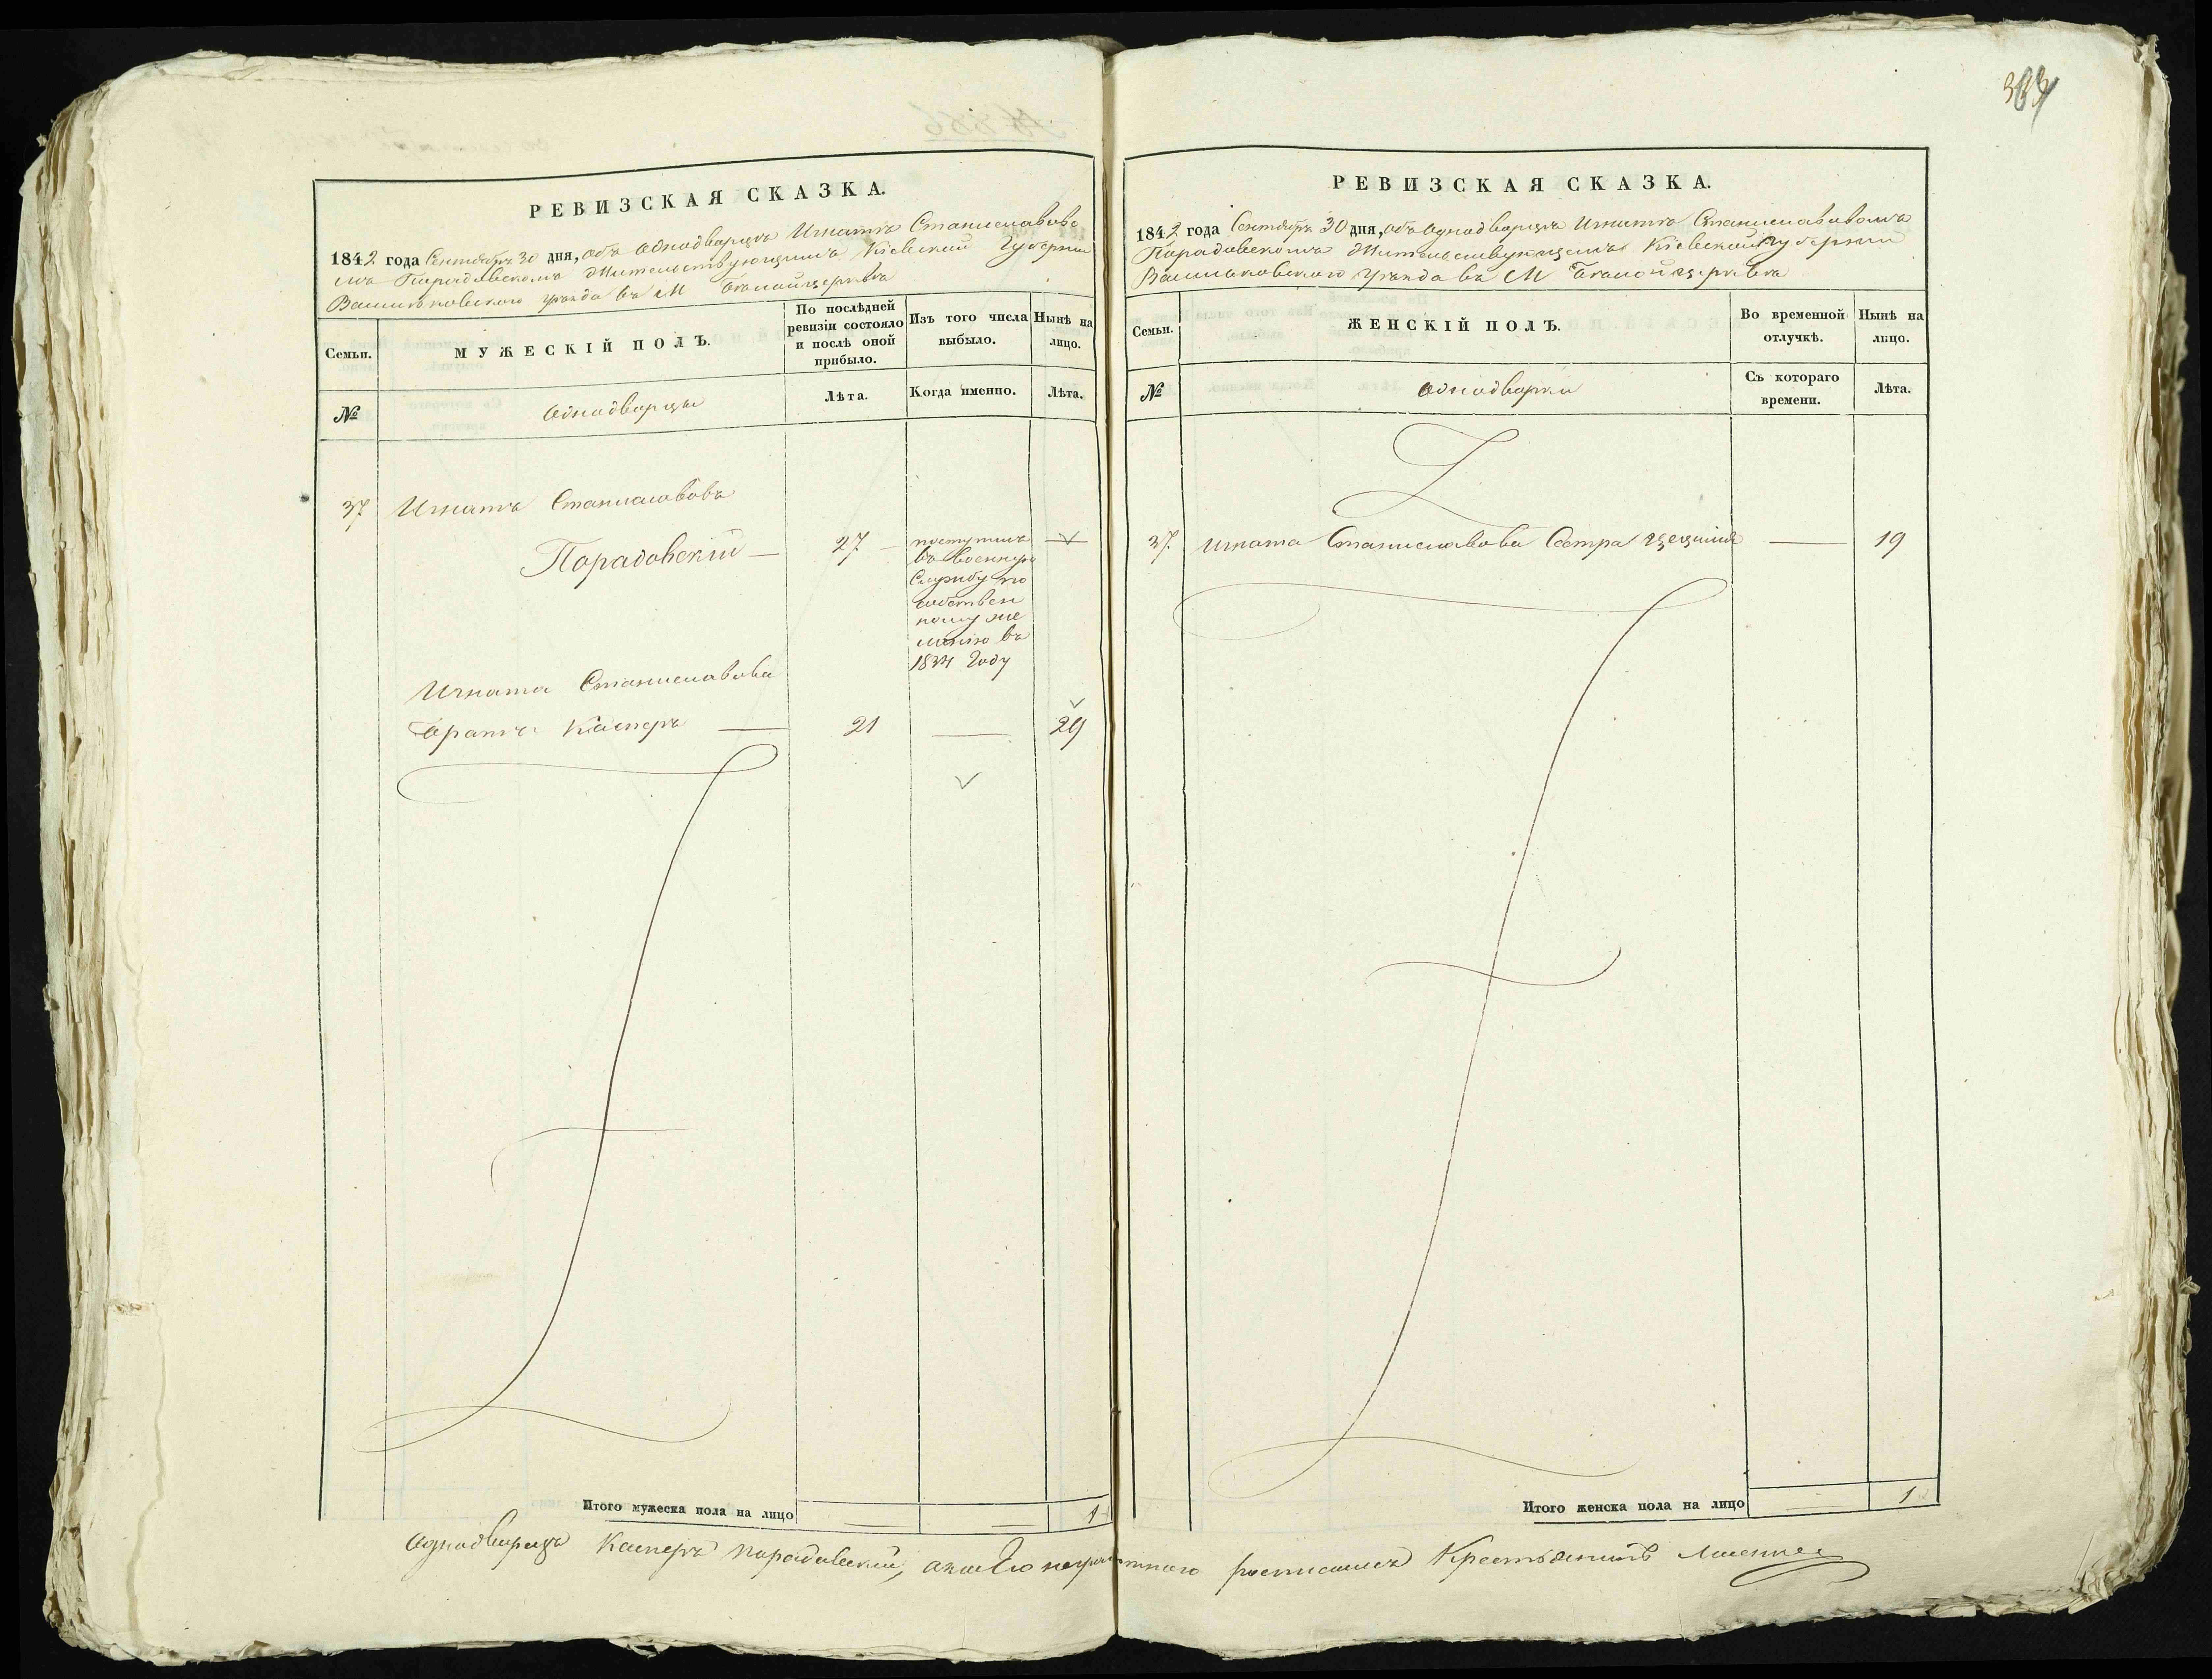 РЕВИЗСКАЯ СКАЗКА.
1842 года Сентября 30 дня, объ однодворцѣ Игнатѣ Станиславово
мъ Парадовскомъ Жительствующимъ Кіевской Губерніи
Васильковского уѣзда въ М Бѣлойцерквѣ
Семьи.
МУЖЕСКІЙ ПОЛЪ.
По послѣдней
ревизіи состояло
и послѣ оной
прибыло.
Изъ того числа
выбыло.
Нынѣ на
лицо.
№
Однодворцы
Лѣта.
Когда именно.
Лѣта.
37 Игнатъ Станиславовъ
Парадовскій — 27 — поступилъ
въ военную
Службу по
собствен
ному же
ланію въ
1834 Году
Игната Станиславова
Братъ Касперъ — 21 — 29
Итого мужеска пола на лицо — — 1
РЕВИЗСКАЯ СКАЗКА.
1842 года Сентября 30 дня, объ однодворцѣ Игнатѣ Станиславовомъ
Парадовскомъ Жительствующемъ Кіевской Губерніи
Васильковского уѣзда въ М Бѣлойцерквѣ
Семьи.
ЖЕНСКІЙ ПОЛЪ.
Во временной
отлучкѣ.
Нынѣ на
лицо.
№
Однодворки
Съ котораго
времени.
Лѣта.
37. Игната Станиславова Сестра Цецилія — 19
Итого женска пола на лицо — 1
Однодворецъ Касперъ Парадовскій, а за Его неграмотного росписался Крестьянинъ